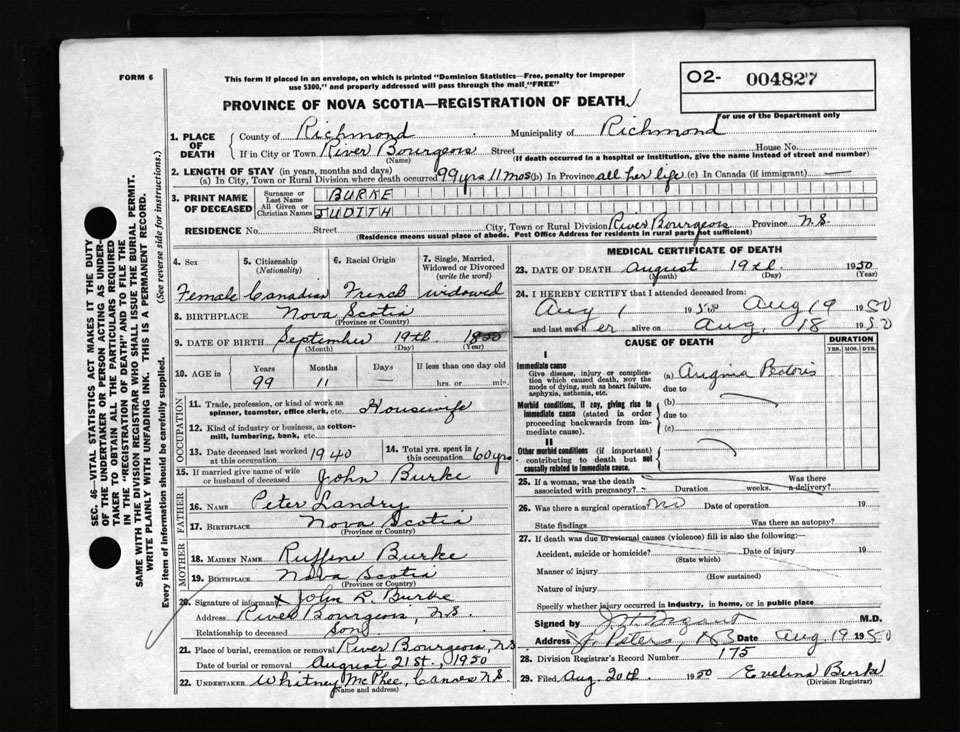 FORM 6
This form if placed in an envelope, on which is printed "Dominion Statistics—Free, penalty for improper
use $300," and properly addressed will pass through the mail "FREE"
O2- 004827
For use of the Department only
PROVINCE OF NOVA SCOTIA—REGISTRATION OF DEATH
SEC. 46—VITAL STATISTICS ACT MAKES IT THE DUTY
OF THE UNDERTAKER OR PERSON ACTING AS UNDER-
TAKER TO OBTAIN ALL THE PARTICULARS REQUIRED
IN THE "REGISTRATION OF DEATH" AND TO FILE THE
SAME WITH THE DIVISION REGISTRAR WHO SHALL ISSUE THE BURIAL PERMIT.
WRITE PLAINLY WITH UNFADING INK. THIS IS A PERMANENT RECORD.
Every item of information should be carefully supplied. (See reverse side for instructions.)
1. PLACE OF DEATH
County of Richmond Municipality of Richmond
If in City or Town River Bourgeois Street House No.
(Name) (If death occurred in a hospital or institution, give the name instead of street and number)
2. LENGTH OF STAY (in years, months and days)
(a) In City, Town or Rural Division where death occurred 99 yrs 11 mos (b) In Province all her life (c) In Canada (if immigrant) —
3. PRINT NAME OF DECEASED
Surname or Last Name BURKE
All Given or Christian Names JUDITH
RESIDENCE No. Street City, Town or Rural Division River Bourgeois Province N.S.
(Residence means usual place of abode. Post Office Address for residents in rural parts not sufficient)
4. Sex 5. Citizenship (Nationality) 6. Racial Origin 7. Single, Married, Widowed or Divorced (write the word)
Female Canadian French widowed
8. BIRTHPLACE Nova Scotia
(Province or Country)
9. DATE OF BIRTH September 19th. 1850
(Month) (Day) (Year)
10. AGE in Years Months Days If less than one day old
99 11 — hrs. or min.
OCCUPATION
11. Trade, profession, or kind of work as spinner, teamster, office clerk, etc. Housewife
12. Kind of industry or business, as cotton-mill, lumbering, bank, etc.
13. Date deceased last worked at this occupation 1940 14. Total yrs. spent in this occupation 60 yrs
15. If married give name of wife or husband of deceased John Burke
FATHER
16. NAME Peter Landry
17. BIRTHPLACE Nova Scotia
(Province or Country)
MOTHER
18. MAIDEN NAME Ruffine Burke
19. BIRTHPLACE Nova Scotia
(Province or Country)
20. Signature of informant x John L. Burke
Address River Bourgeois, N.S.
Relationship to deceased Son
21. Place of burial, cremation or removal River Bourgeois, N.S
Date of burial or removal August 21st., 1950
22. UNDERTAKER Whitney McPhee, Canoes N.S.
(Name and address)
MEDICAL CERTIFICATE OF DEATH
23. DATE OF DEATH August 19th. 1950
(Month) (Day) (Year)
24. I HEREBY CERTIFY that I attended deceased from:
Aug 1 1950 to Aug 19 1950
and last saw her alive on Aug. 18 1950
CAUSE OF DEATH
DURATION
YRS. MOS. DYS.
I
Immediate cause
Give disease, injury or complication which caused death, NOT the mode of dying, such as heart failure, asphyxia, asthenia, etc.
(a) Angina Pectoris
due to
Morbid conditions, if any, giving rise to immediate cause (stated in order proceeding backwards from immediate cause).
(b)
due to
(c)
II
Other morbid conditions (if important) contributing to death but not causally related to immediate cause.
25. If a woman, was the death associated with pregnancy? Duration weeks. Was there a delivery?
26. Was there a surgical operation? No Date of operation 19
State findings Was there an autopsy?
27. If death was due to external causes (violence) fill in also the following:—
Accident, suicide or homicide? Date of injury 19
(State which)
Manner of injury
(How sustained)
Nature of injury
Specify whether injury occurred in industry, in home, or in public place
Signed by M.D.
Address St. Peters, CB Date Aug. 19 1950
28. Division Registrar's Record Number 175
29. Filed Aug. 20th. 1950 Evelina Burke
(Division Registrar)